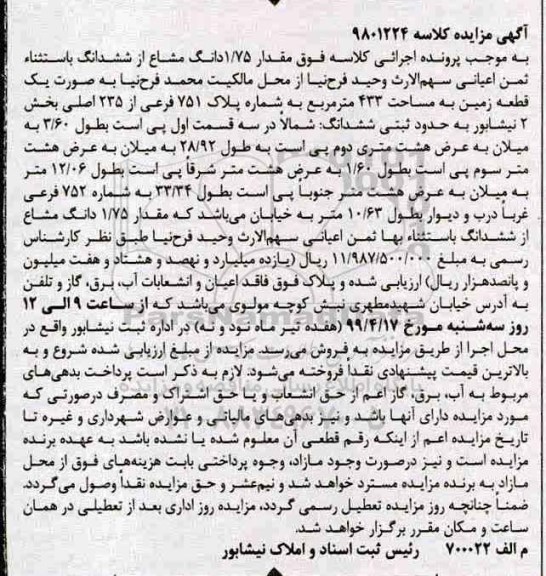 آگهی مزایده کلاسه ۹۸۰۱۲۲۴
به موجب پرونده اجرائی کلاسه فوق مقدار ۱/۷۵دانگ مشاع از ششدانگ باستثناء
ثمن اعیانی سهم‌الارث وحید فرح‌نیا از محل مالکیت محمد فرح‌نیا به صورت یک
قطعه زمین به مساحت ۴۳۳ مترمربع به شماره پلاک ۷۵۱ فرعی از ۲۳۵ اصلی بخش
۲ نیشابور به حدود ثبتی ششدانگ: شمالاً در سه قسمت اول پی است بطول ۳/۶۰ به
میلان به عرض هشت متری دوم پی است به طول ۲۸/۹۲ به میلان به عرض هشت
متر سوم پی است بطول ۱/۶۰ به عرض هشت متر شرقاً پی است بطول ۱۲/۰۶ متر
به میلان به عرض هشت متر جنوباً پی است بطول ۳۳/۳۴ به شماره ۷۵۲ فرعی
غرباً درب و دیوار بطول ۱۰/۶۳ متر به خیابان می‌باشد که مقدار ۱/۷۵ دانگ مشاع
از ششدانگ باستثناء بها ثمن اعیانی سهم‌الارث وحید فرح‌نیا طبق نظر کارشناس
رسمی به مبلغ ۱۱/۹۸۷/۵۰۰/۰۰۰ ریال (یازده میلیارد و نهصد و هشتاد و هفت میلیون
و پانصدهزار ریال) ارزیابی شده و پلاک فوق فاقد اعیان و انشعابات آب، برق، گاز و تلفن
به آدرس خیابان شهیدمطهری نبش کوچه مولوی می‌باشد که از ساعت ۹ الی ۱۲
روز سه‌شنبه مورخ ۹۹/۴/۱۷ (هفده تیر ماه نود و نه) در اداره ثبت نیشابور واقع در
محل اجرا از طریق مزایده به فروش می‌رسد. مزایده از مبلغ ارزیابی شده شروع و به
بالاترین قیمت پیشنهادی نقداً فروخته می‌شود. لازم به ذکر است پرداخت بدهی‌های
مربوط به آب، برق، گاز اعم از حق انشعاب و یا حق اشتراک و مصرف درصورتی که
مورد مزایده دارای آنها باشد و نیز بدهی‌های مالیاتی و عوارض شهرداری و غیره تا
تاریخ مزایده اعم از اینکه رقم قطعی آن معلوم شده یا نشده باشد به عهده برنده
مزایده است و نیز درصورت وجود مازاد، وجوه پرداختی بابت هزینه‌های فوق از محل
مازاد به برنده مزایده مسترد خواهد شد و نیم‌عشر و حق مزایده نقداً وصول می‌گردد.
ضمناً چنانچه روز مزایده تعطیل رسمی گردد، مزایده روز اداری بعد از تعطیلی در همان
ساعت و مکان مقرر برگزار خواهد شد.
م الف ۷۰۰۰۲۲ رئیس ثبت اسناد و املاک نیشابور